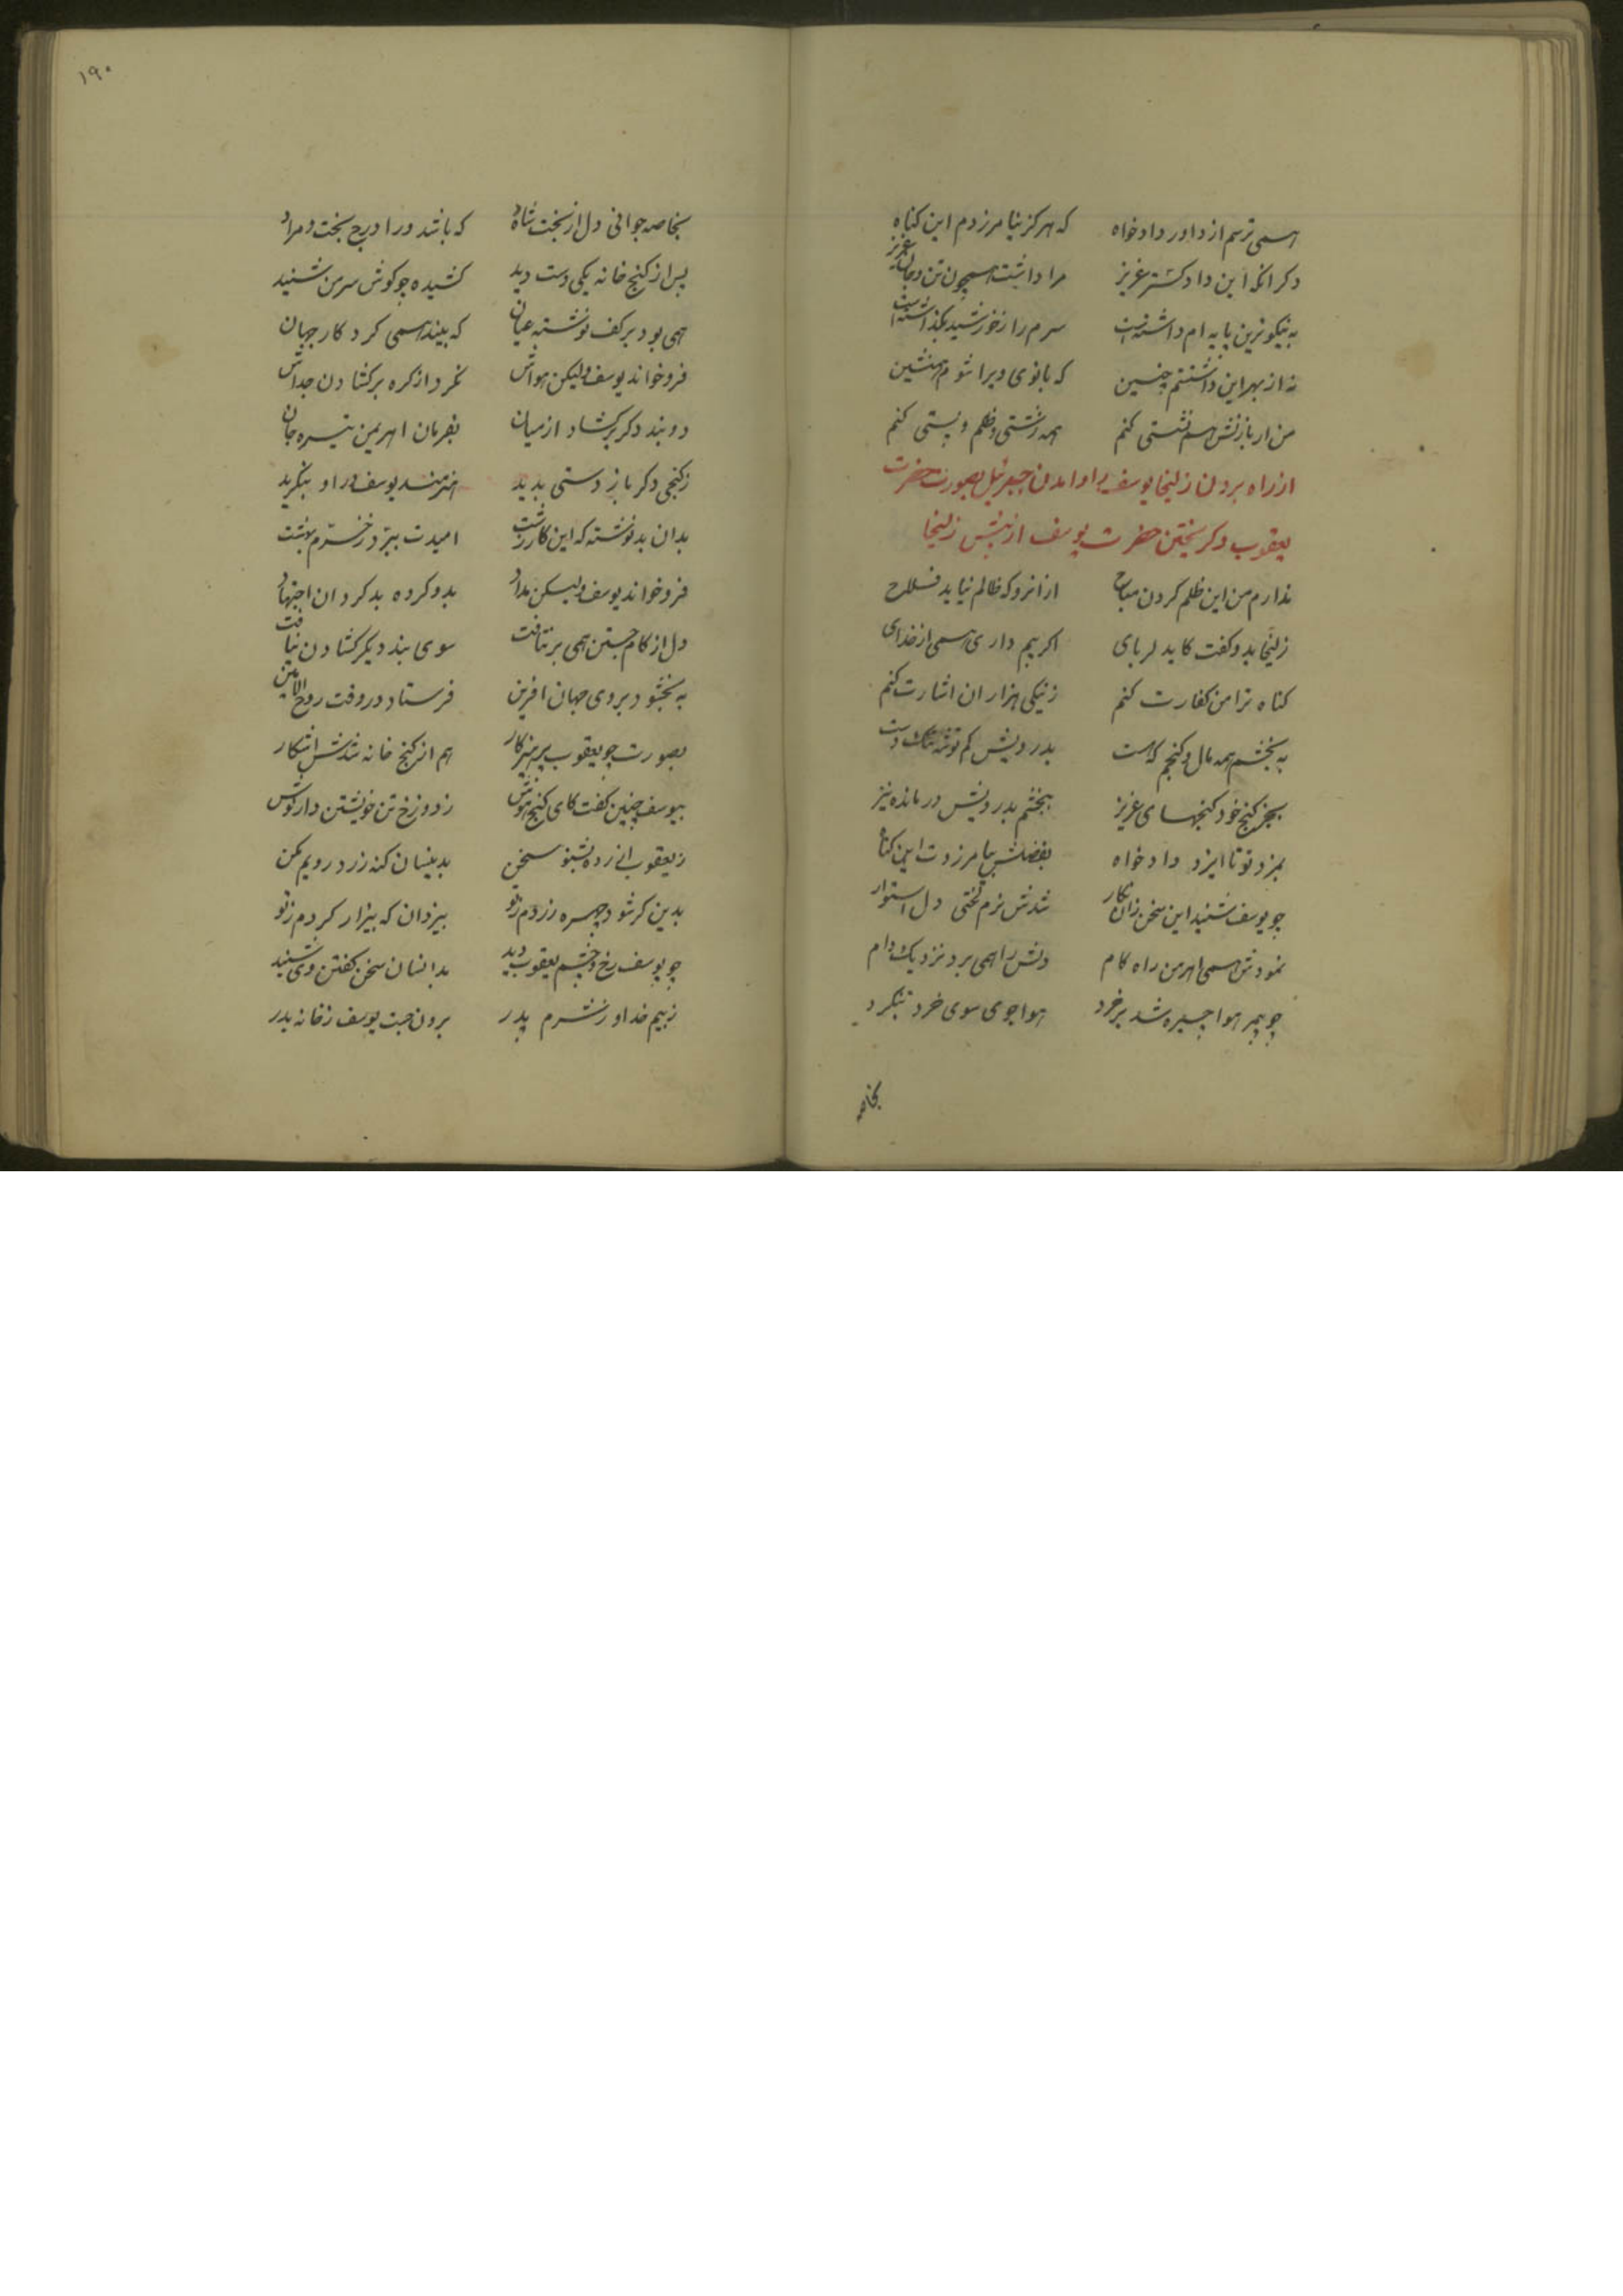 همی ترسم از داور دادخواه که هرگز نیامرزدم این کناه
دکر انکه این دادکستر عزیز مرا داشت همچون تن و جان عزیز
به نیکوترین پایه ام داشتست سرم را ز خورشید بگذاشتست
نه از بهر این داشتستم چنین که بانوی ویرا شوم همنشین
من ار با زنش هم نشستی کنم همه زشتی و ظلم و پستی کنم
از راه بردن زلیخا یوسف را و امدن جبرئیل بصورت حضرت
یعقوب و کریختن حضرت یوسف از پیش زلیخا
ندارم من این ظلم کردن مباح از انرو که ظالم نیابد فلاح
زلیخا بدو کفت کاید لربای اکر بیم داری همی از خدای
کناه ترا من کفارت کنم ز نیکی هزاران اشارت کنم
به بخشم همه مال و کنجم که هست بدرویش کم توشه تنک دست
بجز کنج خود کنجهای عزیز ببخشم بدرویش درمانده نیز
بمزد تو تا ایزد دادخواه بفضلش بیامرزدت این کناه
چو یوسف شنید این سخن زان نکار شدش نرم لختی دل استوار
نمودش همی اهرمن راه کام دلش را همی برد نزدیک دام
چو مهر هوا چیره شد بر خرد هوا جوی سوی خرد ننکرد
بخاصه
۱۹۰
بخاصه جوانی دل از بخت شاد که باشد ورا درج بخت و مراد
پس از کنج خانه یکی دست دید کشیده چو کوش سر من شنید
همی بود بر کف نوشته عیان که بیند همی کردکار جهان
فرو خواند یوسف ولیکن هواش نکرد از کره برکشادن جداش
دو بند دکر برکشاد از میان بفرمان اهریمن تیره جان
ز کنجی دکر باز دستی بدید هنرمند یوسف در او بنکرید
بدان بد نوشته که این کار زشت امیدت ببرد ز خرم بهشت
فرو خواند یوسف ولیکن مداد بدو کرده بد کردان اجتهاد
دل از کام جستن همی برنتافت سوی بند دیکر کشادن شتافت
به بخشود بروی جهان افرین فرستاد در وقت روح الامین
بصورت چو یعقوب پرهیزکار هم از کنج خانه شدش اشکار
بیوسف چنین کفت کای کنج هوش ز دوزخ تن خویشتن دار کوش
ز یعقوب ازرده بشنو سخن بدینسان کنه زرد رویم مکن
بدین کر شود چهره زردم ز تو بیزدان که بیزار کردم ز تو
چو یوسف رخ و چشم یعقوب دید بدانسان سخن کفتن وی شنید
ز بیم خدا و ز شرم پدر برون جست یوسف ز خانه بدر